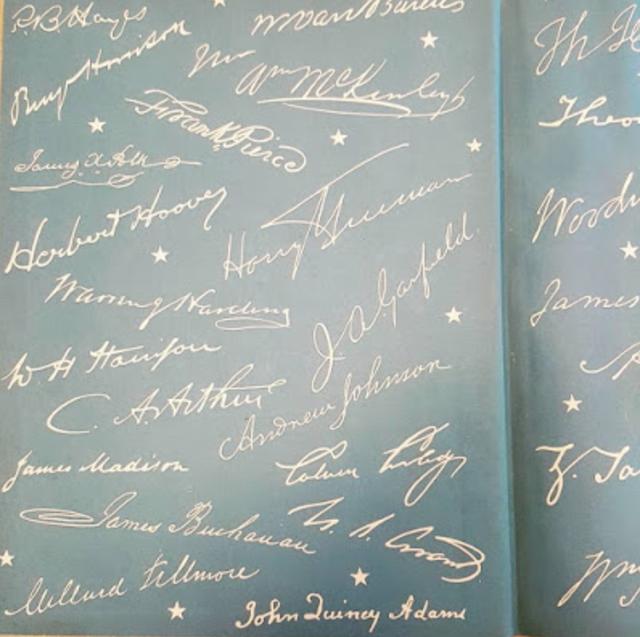 R. B. Hayes
M Van Buren
Benj Harrison
Wm McKinley
Frank. Pierce
James K. Polk
Herbert Hoover
Harry Truman
Warren G Harding
J. A. Garfield.
W H Harrison
C. A. Arthur
Andrew Johnson
James Madison
Calvin Coolidge
James Buchanan
U. S. Grant
Millard Fillmore
John Quincy Adams
Th
Theo
Woodr
James
Z. Ta
Wm